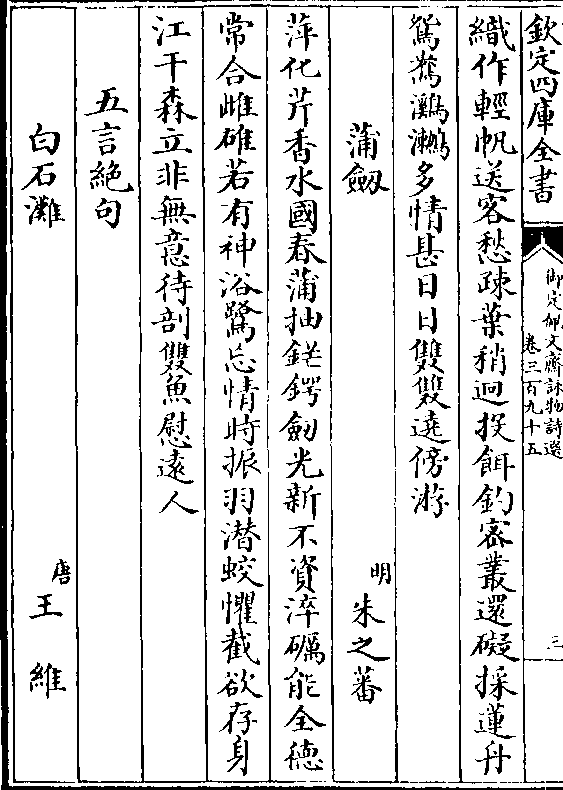 欽定四庫全書
御定佩文齋詠物詩選
卷三百九十五
三
織作輕帆送客愁疎葉稍迴投餌釣密叢還礙採蓮舟
鴛鴦鸂鶒多情甚日日雙雙遶傍游
蒲劔
明
朱之蕃
萍化芹香水國春蒲抽鋩鍔劔光新不資淬礪能全徳
常合雌雄若有神浴鷺忘情時振羽潜蛟懼截欲存身
江干森立非無意待剖雙魚慰逺人
五言絶句
白石灘
唐
王維